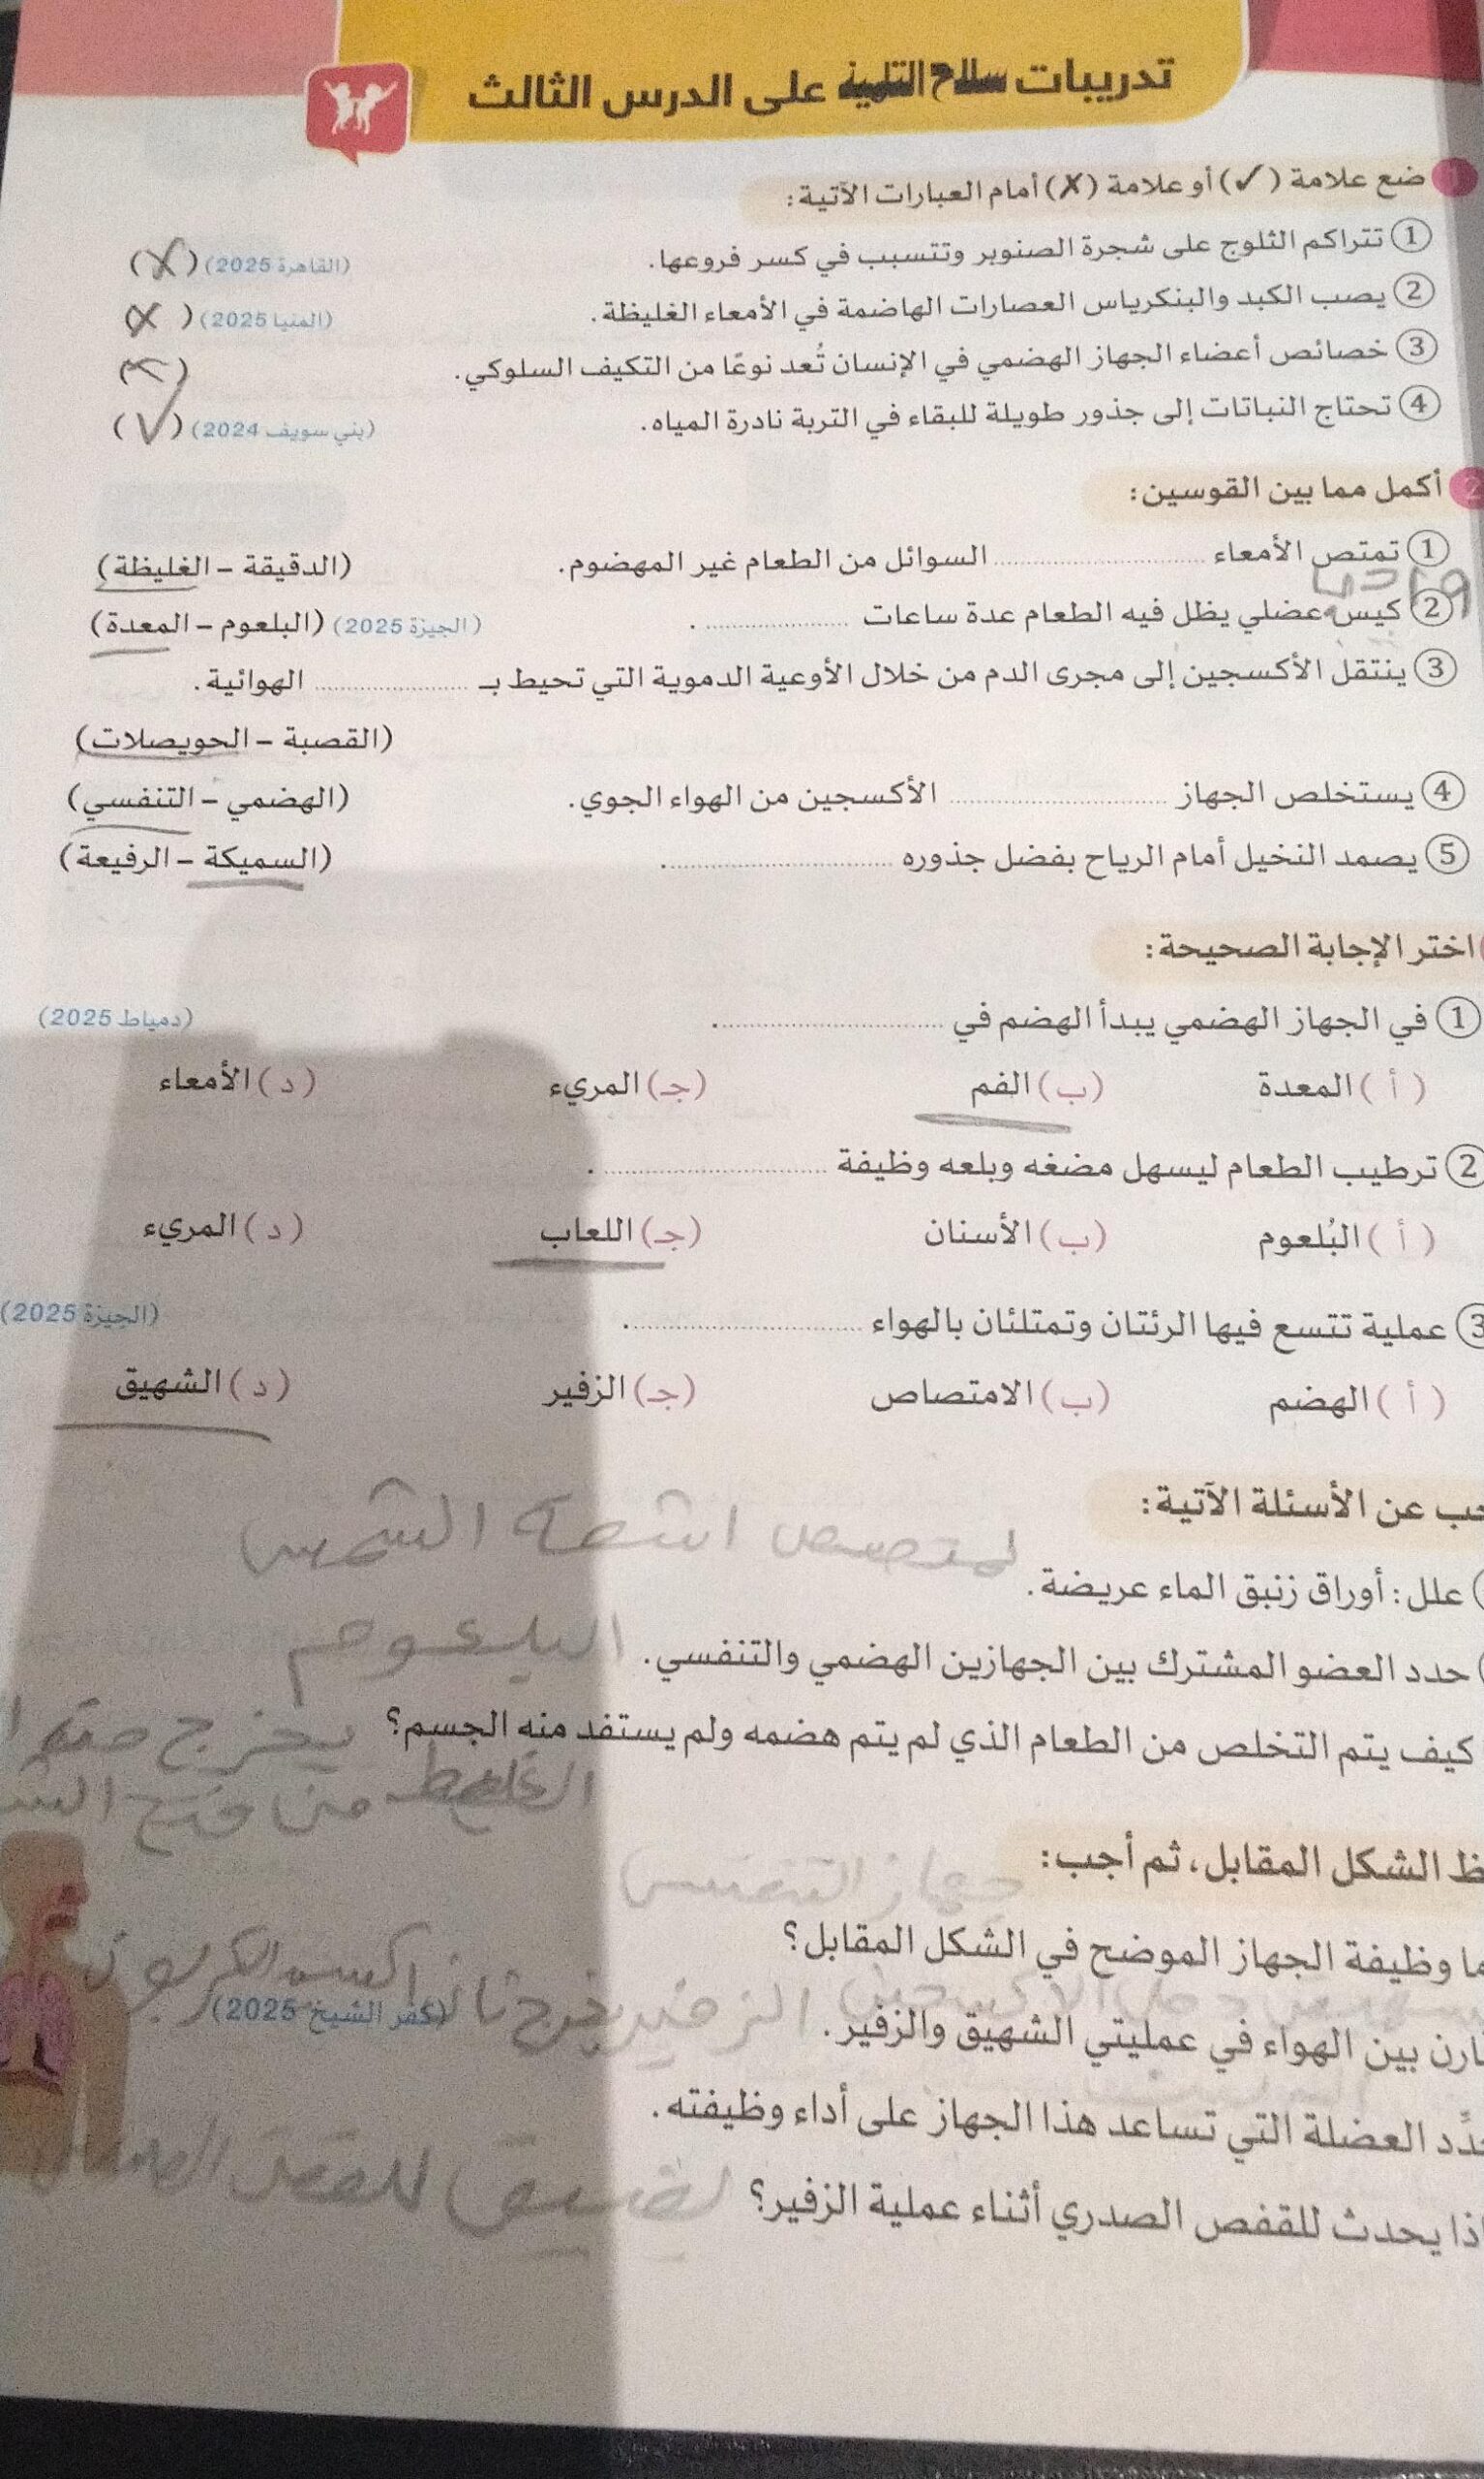 تدريبات سلاح التلميذ على الدرس الثالث
ضع علامة (✓) أو علامة (✗) أمام العبارات الآتية:
① تتراكم الثلوج على شجرة الصنوبر وتتسبب في كسر فروعها. (القاهرة 2025) (X)
② يصب الكبد والبنكرياس العصارات الهاضمة في الأمعاء الغليظة. (المنيا 2025) (X)
③ خصائص أعضاء الجهاز الهضمي في الإنسان تُعد نوعًا من التكيف السلوكي. (X)
④ تحتاج النباتات إلى جذور طويلة للبقاء في التربة نادرة المياه. (بني سويف 2024) (✓)
2 أكمل مما بين القوسين:
① تمتص الأمعاء .............. السوائل من الطعام غير المهضوم. (الدقيقة – الغليظة)
② كيس عضلي يظل فيه الطعام عدة ساعات .............. . (الجيزة 2025) (البلعوم – المعدة)
③ ينتقل الأكسجين إلى مجرى الدم من خلال الأوعية الدموية التي تحيط بـ .............. الهوائية.
(القصبة – الحويصلات)
④ يستخلص الجهاز .............. الأكسجين من الهواء الجوي. (الهضمي – التنفسي)
⑤ يصمد النخيل أمام الرياح بفضل جذوره .............. . (السميكة – الرفيعة)
اختر الإجابة الصحيحة:
① في الجهاز الهضمي يبدأ الهضم في .............. . (دمياط 2025)
(أ) المعدة (ب) الفم (جـ) المريء (د) الأمعاء
② ترطيب الطعام ليسهل مضغه وبلعه وظيفة .............. .
(أ) البُلعوم (ب) الأسنان (جـ) اللعاب (د) المريء
③ عملية تتسع فيها الرئتان وتمتلئان بالهواء .............. . (الجيزة 2025)
(أ) الهضم (ب) الامتصاص (جـ) الزفير (د) الشهيق
جب عن الأسئلة الآتية:
اشعة الشمس
علل: أوراق زنبق الماء عريضة.
حدد العضو المشترك بين الجهازين الهضمي والتنفسي. البلعوم
كيف يتم التخلص من الطعام الذي لم يتم هضمه ولم يستفد منه الجسم؟ يخرج
من فتح
ظ الشكل المقابل، ثم أجب:
جهاز التنفس
ما وظيفة الجهاز الموضح في الشكل المقابل؟
ارن بين الهواء في عمليتي الشهيق والزفير. (كفر الشيخ 2025)
الزفير يخرج ثاني اكسيد الكربون
دِّد العضلة التي تساعد هذا الجهاز على أداء وظيفته.
اذا يحدث للقفص الصدري أثناء عملية الزفير؟